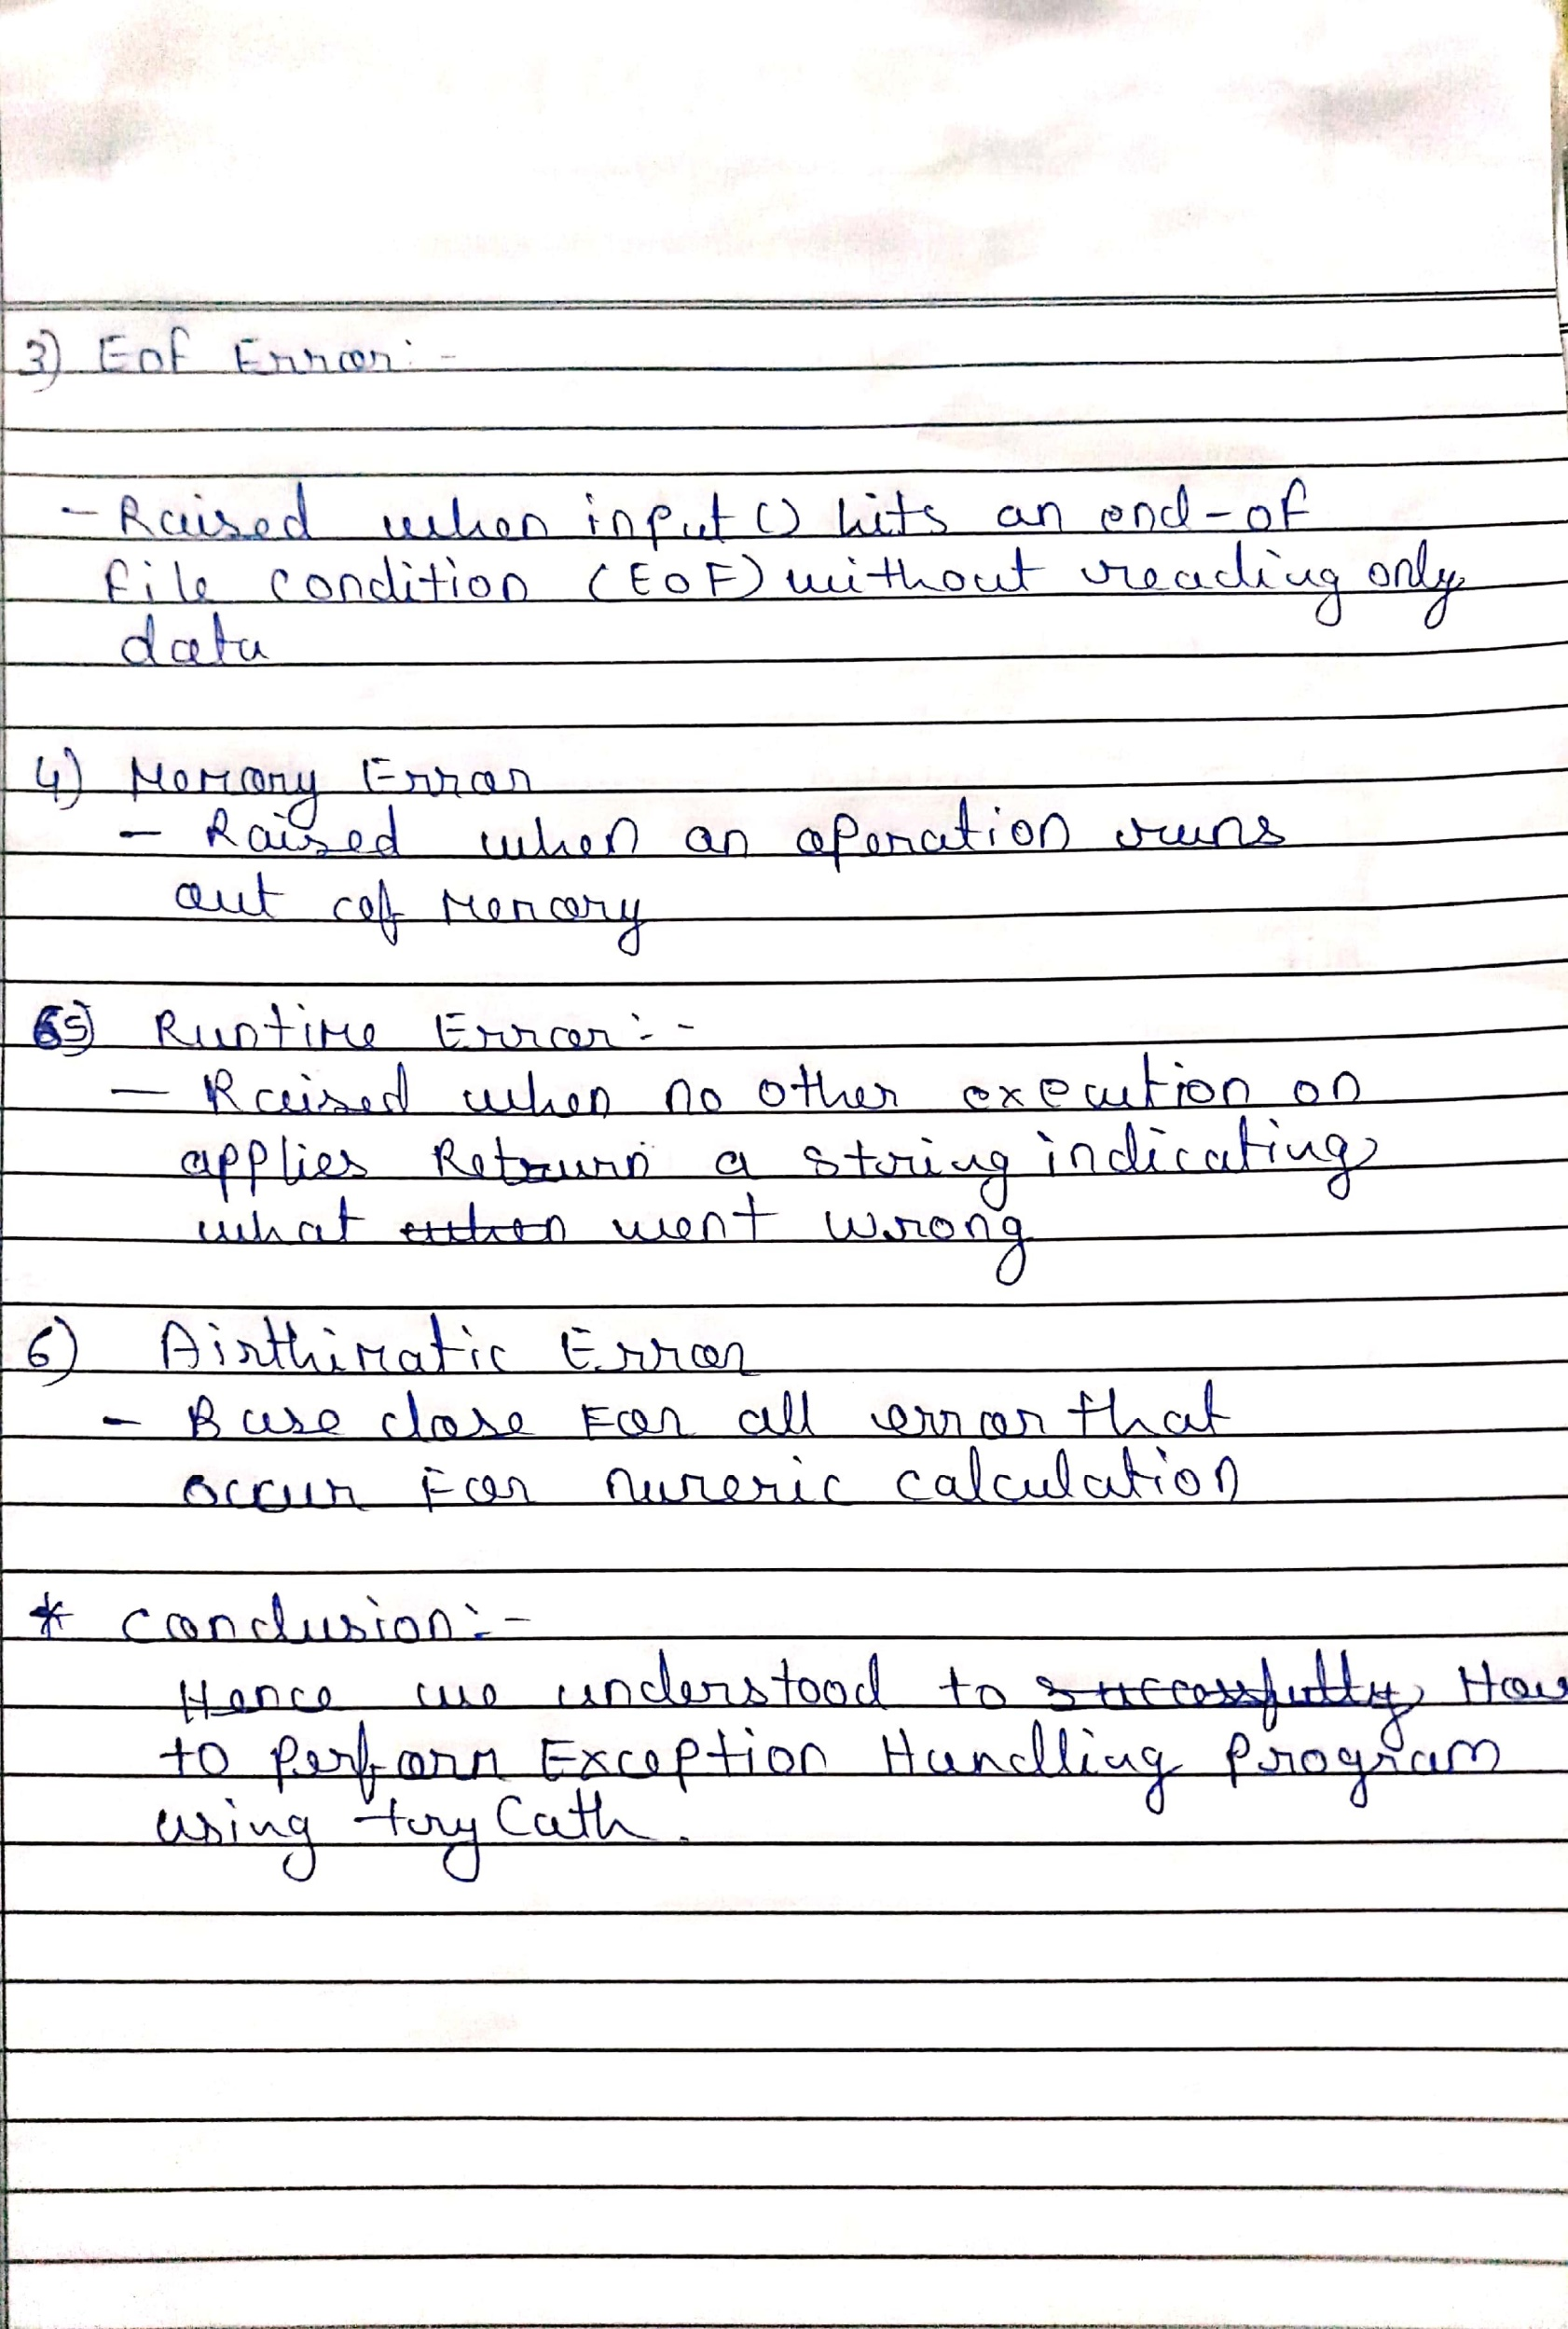 3) EOF Error:-
- Raised when input () hits an end-of
file condition (EOF) without reading only
data
4) Memory Error
- Raised when an operation runs
out of Memory
5) Runtime Error:-
- Raised when no other execution on
applies Return a string indicating
what when went wrong
6) Airthimatic Error
- Base close For all error that
occur For numeric calculation
* Conclusion:-
Hence we understood to successfully How
to perform Exception Handling program
using try Cath.